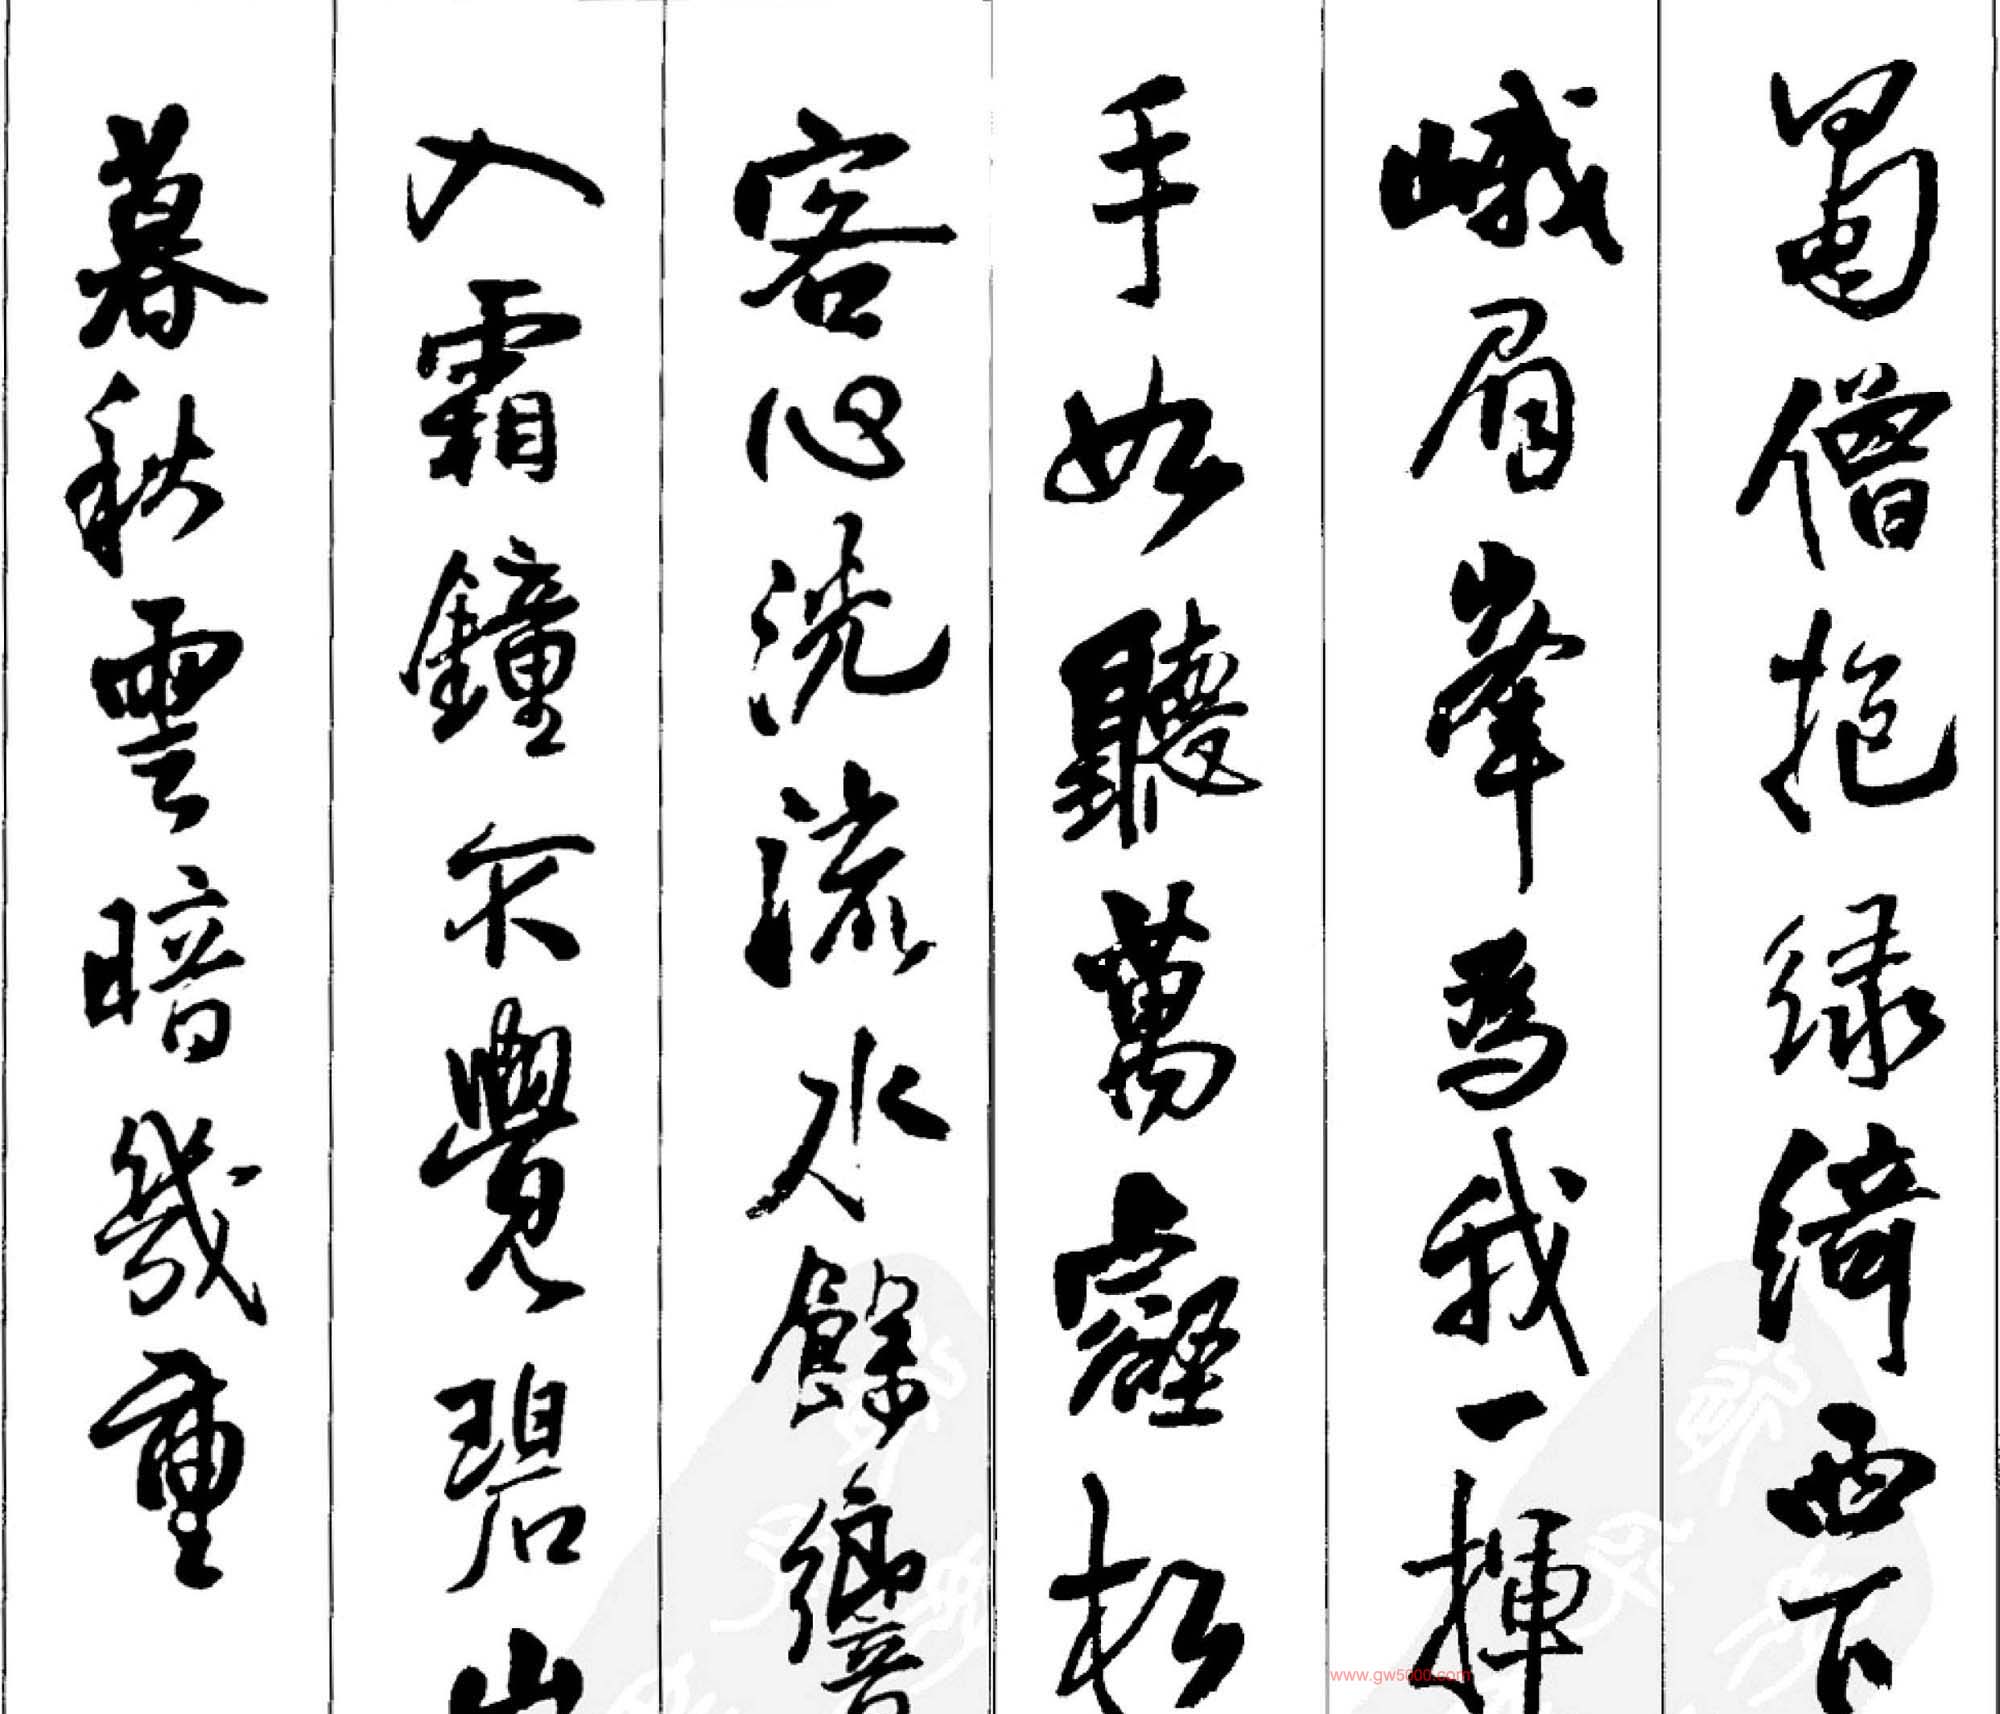 蜀僧抱绿绮西下
峨眉峰為我一揮
手如聽萬壑松
客心洗流水餘響
入霜鐘不覺碧山
暮秋雲暗幾重
www.gw5000.com